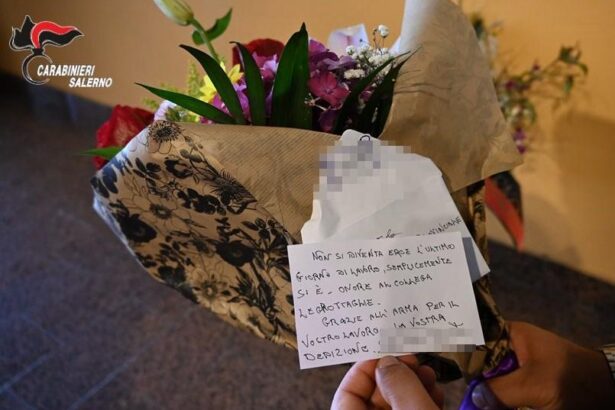 CARABINIERI
SALERNO
NON SI DIVENTA EROE L'ULTIMO
GIORNO DI LAVORO, SEMPLICEMENTE
SI È. ONORE AL COLLEGA
LEGROTTAGLIE.
GRAZIE ALL'ARMA PER IL
VOSTRO LAVORO LA VOSTRA
DEDIZIONE.